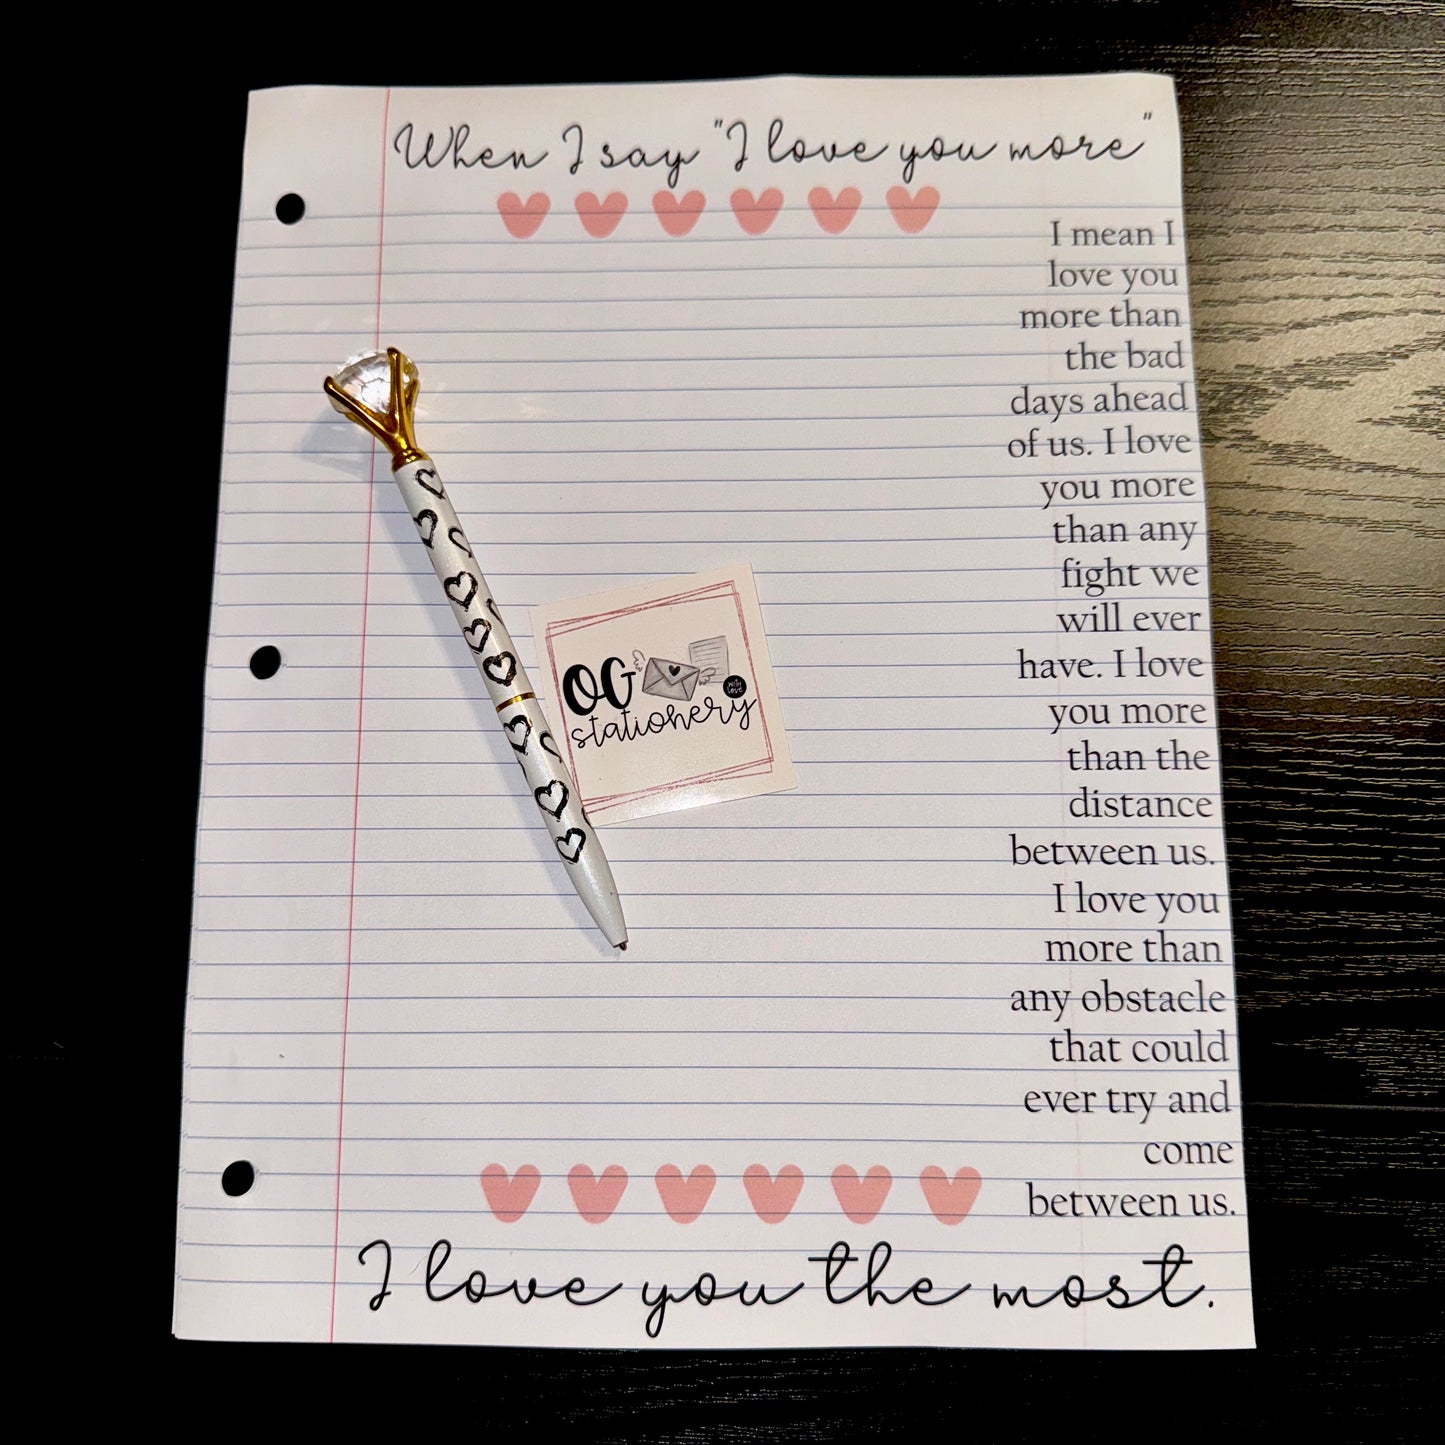 When I say "I love you more"
I mean I
love you
more than
the bad
days ahead
of us. I love
you more
than any
fight we
will ever
have. I love
you more
than the
distance
between us.
I love you
more than
any obstacle
that could
ever try and
come
between us.
I love you the most.
OG
with
love
stationery